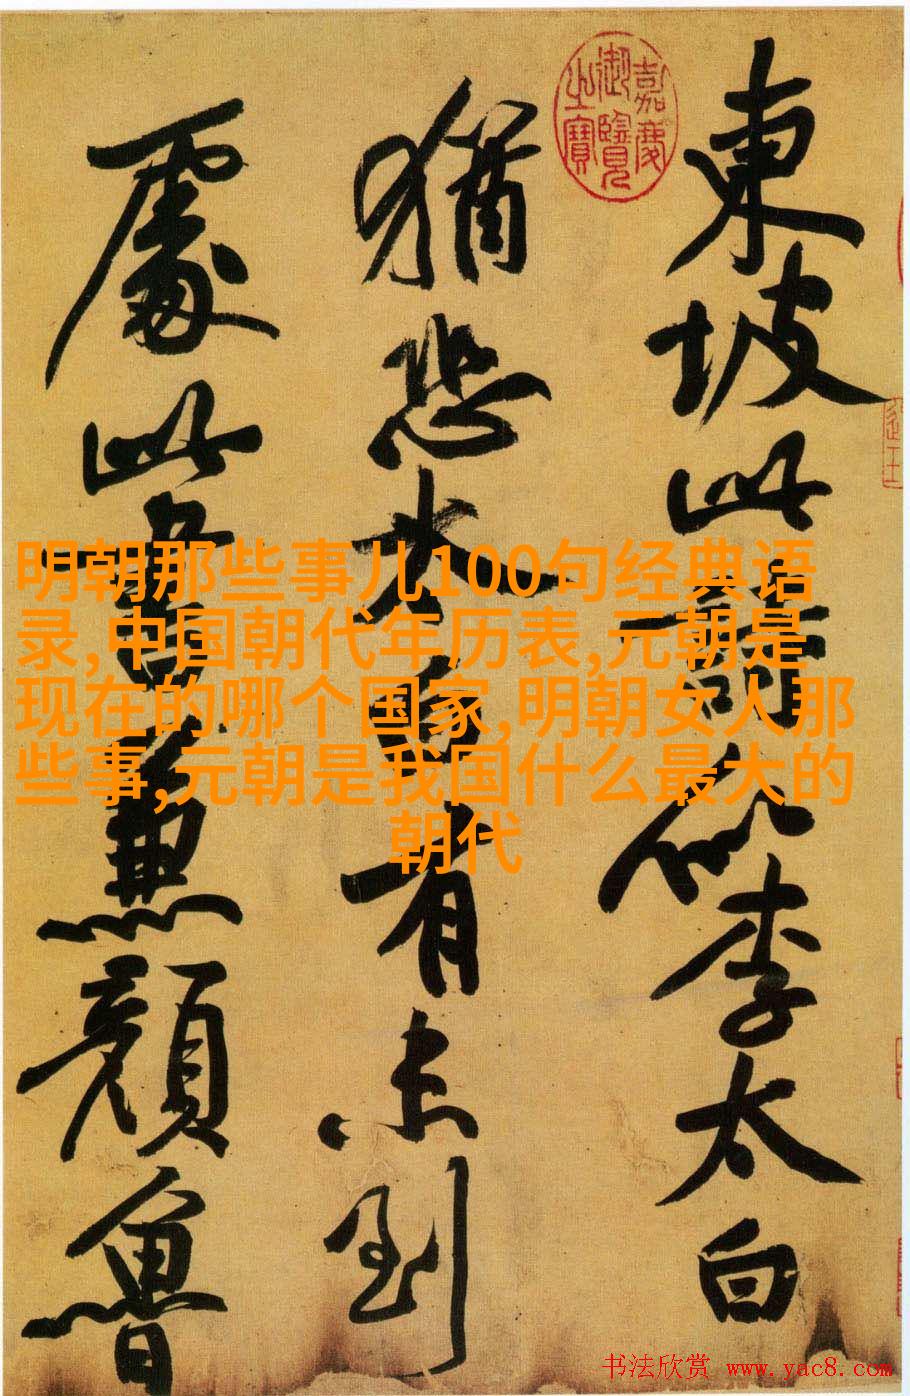 東坡此詩似李太白
猶恐太白有未到
處此書兼顏魯
嘉慶
御覽
之寶
明朝那些事儿100句经典语
录,中国朝代年历表,元朝是
现在的哪个国家,明朝女人那
些事,元朝是我国什么最大的
朝代
书法欣赏 www.yac8.com